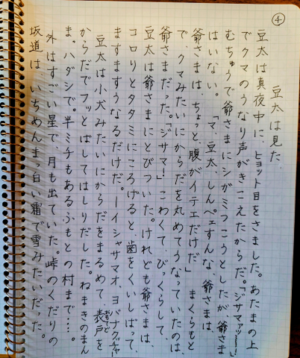 ④
豆太は見た
豆太は真夜中に ヒョット目をさました。あたまの上
でクマのうなり声がきこえたからだ。「ジサマァッ―」
むちゅうで爺さまにシガミつこうとしたが爺さま
はいない。「マ、豆太、しんぺぇすんな、爺さまは、
爺さまはちょっと腹がイテエだけだ」まくらもと
で、クマみたいにからだを丸めてうなっていたのは
爺さまだった。「ジサマ」こわくて、びっくらして、
豆太は爺さまにとびついた。けれども爺さまは、
コロリとタタミにころげると、歯をくいしばって、
ますますうなるだけだ。―イシャサマオ、ヨバナクッチャ
豆太は小犬みたいにからだをまるめて 表戸を
からだでフッとばしてはしりだした。ねまきのまん
ま。ハダシで。半ミチもあるふもとの村まで……
外はすごい星で 月も出ていた。峠のくだりの
坂道は、いちめんまっ白い霜で雪みたいだった。